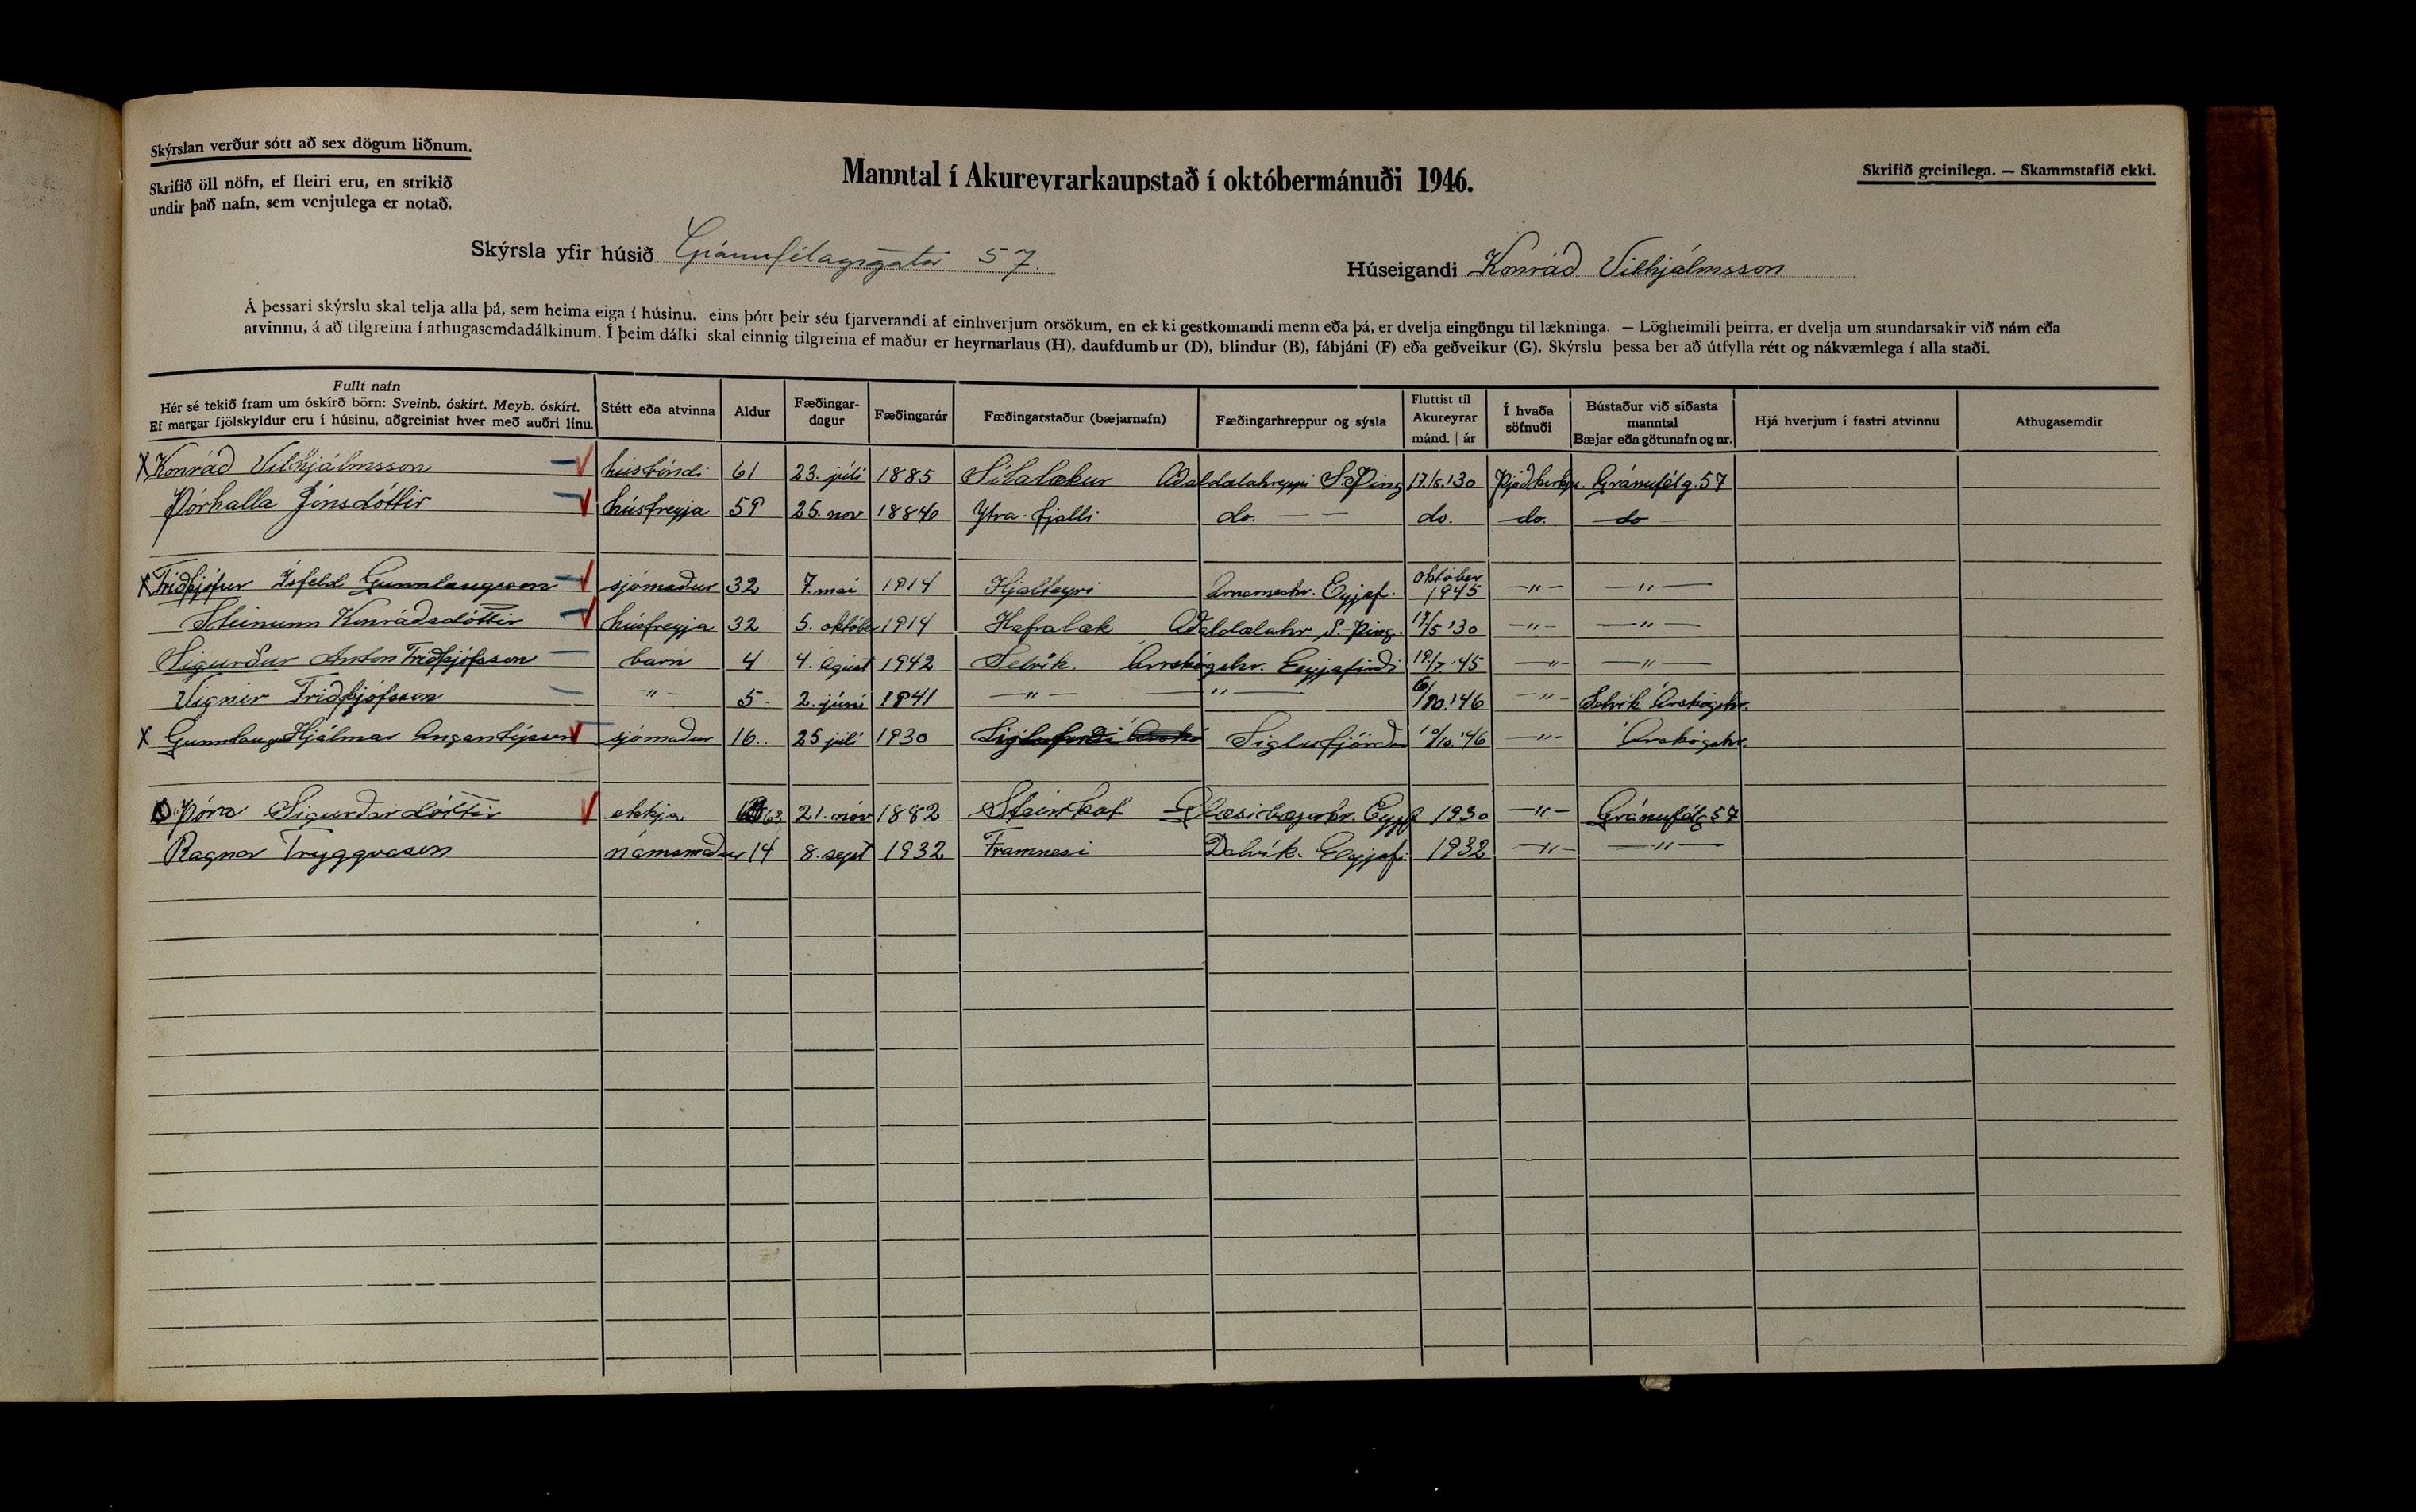 Skýrslan verður sótt að sex dögum liðnum.
Skrifið öll nöfn, ef fleiri eru, en strikið
undir það nafn, sem venjulega er notað.
Manntal í Akureyrarkaupstað í októbermánuði 1946.
Skrifið greinilega. — Skammstafið ekki.
Skýrsla yfir húsið Gránufélagsgata 57.
Húseigandi Konráð Vilhjálmsson
Á þessari skýrslu skal telja alla þá, sem heima eiga í húsinu, eins þótt þeir séu fjarverandi af einhverjum orsökum, en ekki gestkomandi menn eða þá, er dvelja eingöngu til lækninga. — Lögheimili þeirra, er dvelja um stundarsakir við nám eða
atvinnu, á að tilgreina í athugasemdadálkinum. Í þeim dálki skal einnig tilgreina ef maður er heyrnarlaus (H), daufdumbur (D), blindur (B), fábjáni (F) eða geðveikur (G). Skýrslu þessa ber að útfylla rétt og nákvæmlega í alla staði.
Fullt nafn
Hér sé tekið fram um óskírð börn: Sveinb. óskírt. Meyb. óskírt.
Ef margar fjölskyldur eru í húsinu, aðgreinist hver með auðri línu.
Stétt eða atvinna
Aldur
Fæðingar-
dagur
Fæðingarár
Fæðingarstaður (bæjarnafn)
Fæðingarhreppur og sýsla
Fluttist til
Akureyrar
mánd. | ár
Í hvaða
söfnuði
Bústaður við síðasta
manntal
Bæjar eða götunafn og nr.
Hjá hverjum í fastri atvinnu
Athugasemdir
X Konráð Vilhjálmsson húsbóndi 61 23. júlí 1885 Sílalækur Aðaldalahreppi S-Þing 17/5.'30 Þjóðkirkju. Gránufélg. 57
Þórhalla Jónsdóttir húsfreyja 59 25. nov Ytra-fjalli do. — — do. do. do
X Friðþjófur Ísfeld Gunnlaugsson sjómaður 32 7. maí 1914 Hjalteyri Arnarneshr. Eyjaf. október 1945 —"— —"—
Steinunn Konráðsdóttir húsfreyja 32 5. október 1914 Hafralæk Aðaldalahr. S.-Þing. 17/5 '30 —"— —"—
Sigurður Anton Friðþjófsson barn 4 4. ágúst 1942 Selvík. Árskógshr. Eyjafirði 19/7.'45 —"— —"—
Vignir Friðþjófsson —"— 5 2. júní 1941 —"— —"— 6/10.'46 —"— Selvík Árskógshr.
X Gunnlaugur Hjálmar Angantýsson sjómaður 16. 25 júlí 1930 Siglufirði Siglufjörður 10/10 '46 —"— Árskógshr.
Þóra Sigurðardóttir ekkja 63 21. nóv 1882 Steinkot Glæsibæjarhr. Eyjf 1930 —"— Gránufélg 57
Ragnar Tryggvason námsmaður 14 8. sept 1932 Framnesi Dalvík. Eyjaf. 1932 —"— —"—